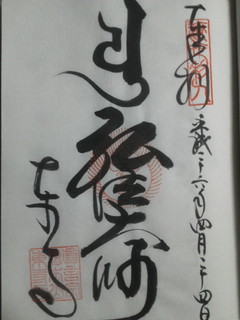 奉拝
平成二十六年四月二十四日
弘法大師
東寺